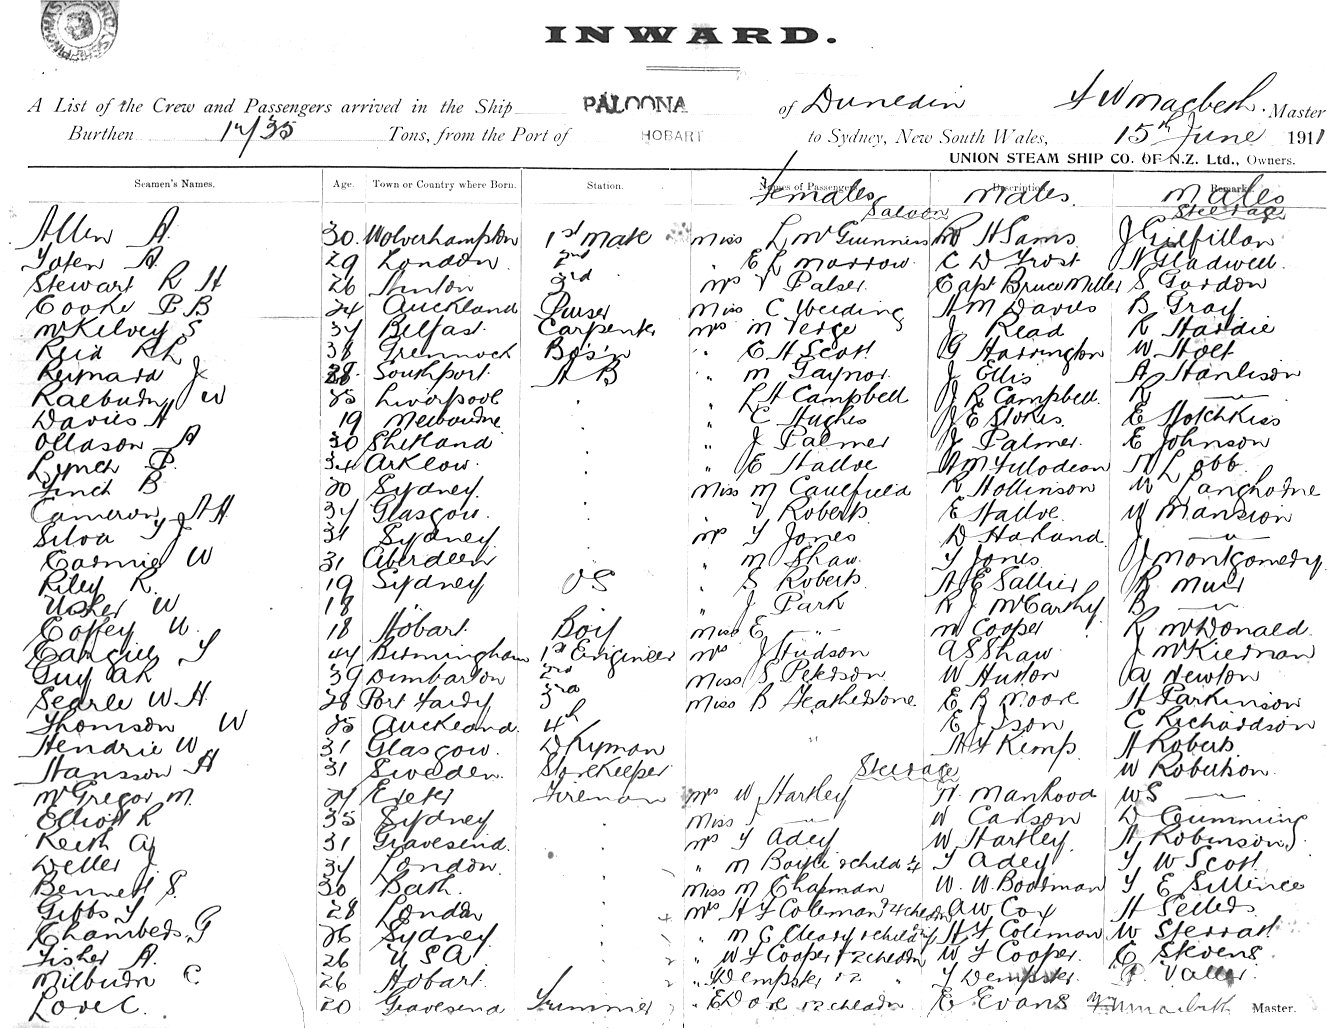 INWARD.
A List of the Crew and Passengers arrived in the Ship PALOONA of Dunedin Master
Burthen Tons, from the Port of HOBART to Sydney, New South Wales, 15th June 1911
UNION STEAM SHIP CO. OF N.Z. Ltd., Owners.
Seamen's Names. Age. Town or Country where Born. Station. Names of Passengers Description. Remarks.
Females Males Males
Saloon Steerage
Allen A. 30 Wolverhampton 1st Mate Miss L McGuinness H Sams J Gilfillan
A. 29 London 2nd " E L Morrow C D Frost N Gladwell
Stewart R H 26 3rd Mrs Palser Capt Bruce Miller S Gordon
Cooke P B 24 Auckland Purser Miss C Weeding H M Davies B Gray
McKelvey S 34 Belfast Carpenter Mrs M Verge J Read R Hardie
Reid R L 38 Greenock Bos'n " E H Scott G Harrington W Holt
J Southport A B " M Gaynor J Ellis A
Raeburn W 35 Liverpool " L H Campbell J R Campbell R "
Davies H 19 Melbourne " C Hughes J E Stokes E Hotchkiss
Ollason A 30 Shetland " J Palmer J Palmer E Johnson
Lynch P. 34 Arklow " E H Lobb
Finch B 20 Sydney Miss M Caulfield R Hollinson W Langhorne
Cameron A H 34 Glasgow Roberts E W Mansion
Silva J 31 Sydney Mrs Jones D Harland "
W 31 Aberdeen " M Shaw Jones J Montgomery
Riley R. 19 Sydney O S " S Roberts A E Sallier R Muir
Usher W 18 " J Park R J McCarthy B "
Coffey W. 18 Hobart Boy Miss E " M Cooper R McDonald
44 Birmingham 1st Engineer Mrs J Hudson A S Shaw J McKiernan
Guy A R 39 Dumbarton 2nd Miss S Peterson W Hutton A Newton
Searle W. H 28 Port Fairy 3rd Miss B Featherstone E B Moore H Parkinson
Thomson W 25 Auckland 4th E C Richardson
Hendrie W 31 Glasgow Dkyman H F Kemp H Roberts
Hansson H 31 Sweden Storekeeper Steerage W Robertson
McGregor M. 24 Exeter Fireman Mrs W Hartley H. Manhood W S "
Elliott R 35 Sydney Miss " W Carlson D Cumming
Keith A 31 Gravesend " Adey W Hartley H Robinson
Weller J 34 London " M Boyle & child Adey W Scott
Bennett S. 30 Bath Miss M Chapman W. W. Boorman E Sillence
Gibbs 28 London Mrs H F Coleman & 4 childn A W Cox H Sellers
Chambers G 26 Sydney " M C Cleary & child H F Coleman W Sterratt
Fisher A. 26 U S A " W F Cooper & 2 childn W F Cooper C Stevens
Milburn C 26 Hobart Dempster & 2 " Dempster Valler
Love C. 20 Gravesend Trimmer " E Dove & 2 childn E Evans Master.